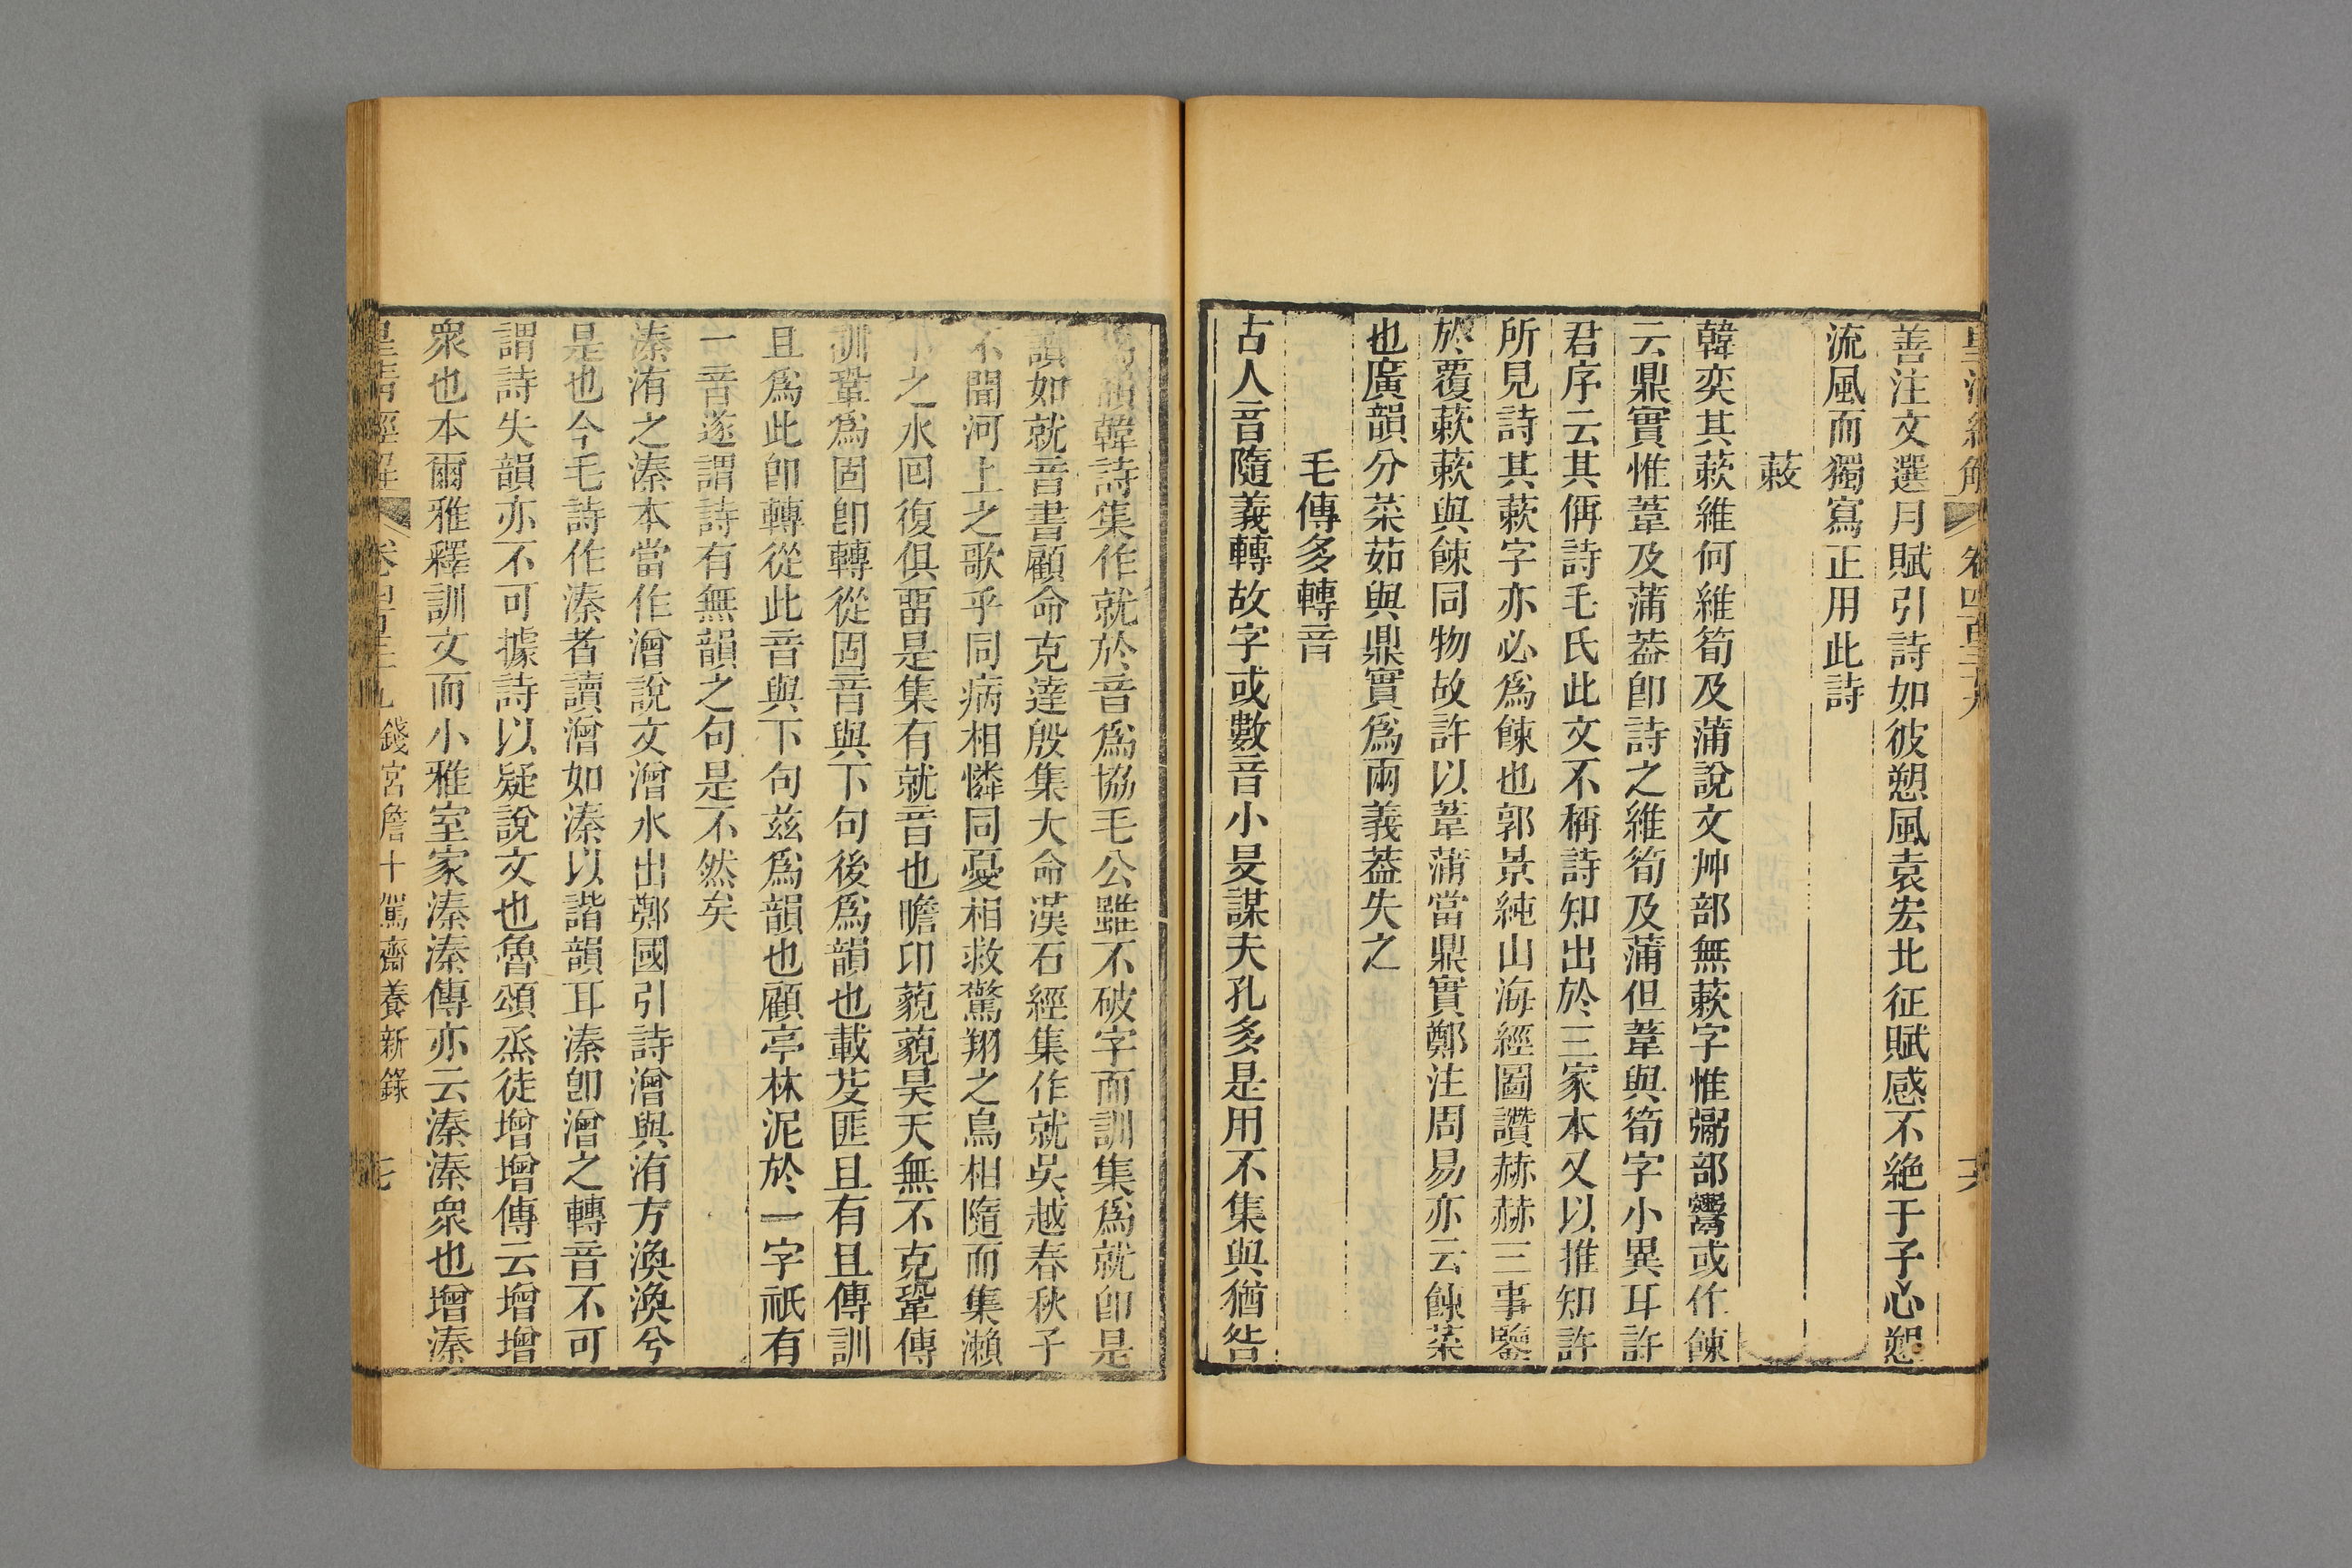 皇清經解 卷四百三十九 十六
善注文選月賦引詩如彼愬風袁宏北征賦感不絶于予心愬
流風而獨寫正用此詩
蔌
韓奕其蔌維何維筍及蒲說文艸部無蔌字惟䰜部鬻或作餗
云鼎實惟葦及蒲葢卽詩之維筍及蒲但葦與筍字小異耳許
君序云其偁詩毛氏此文不稱詩知出於三家本又以推知許
所見詩其蔌字亦必爲餗也郭景純山海經圖讚赫赫三事鑒
於覆蔌蔌與餗同物故許以葦蒲當鼎實鄭注周易亦云餗菜
也廣韻分菜茹與鼎實爲兩義葢失之
毛傳多轉音
古人音隨義轉故字或數音小旻謀夫孔多是用不集與猶咎
爲韻韓詩集作就於音爲協毛公雖不破字而訓集爲就卽是
讀如就音書顧命克達殷集大命漢石經集作就吳越春秋子
不聞河上之歌乎同病相憐同憂相救驚翔之鳥相隨而集瀨
下之水回復俱畱是集有就音也瞻卬藐藐昊天無不克鞏傳
訓鞏爲固卽轉從固音與下句後爲韻也載芟匪且有且傳訓
且爲此卽轉從此音與下句茲爲韻也顧亭林泥於一字祇有
一音遂謂詩有無韻之句是不然矣
溱洧之溱本當作潧說文潧水出鄭國引詩潧與洧方渙渙兮
是也今毛詩作溱者讀潧如溱以諧韻耳溱卽潧之轉音不可
謂詩失韻亦不可據詩以疑說文也魯頌烝徒增增傳云增增
衆也本爾雅釋訓文而小雅室家溱溱傳亦云溱溱衆也增溱
皇清經解 卷四百三十九 錢宮詹十駕齋養新錄 十七